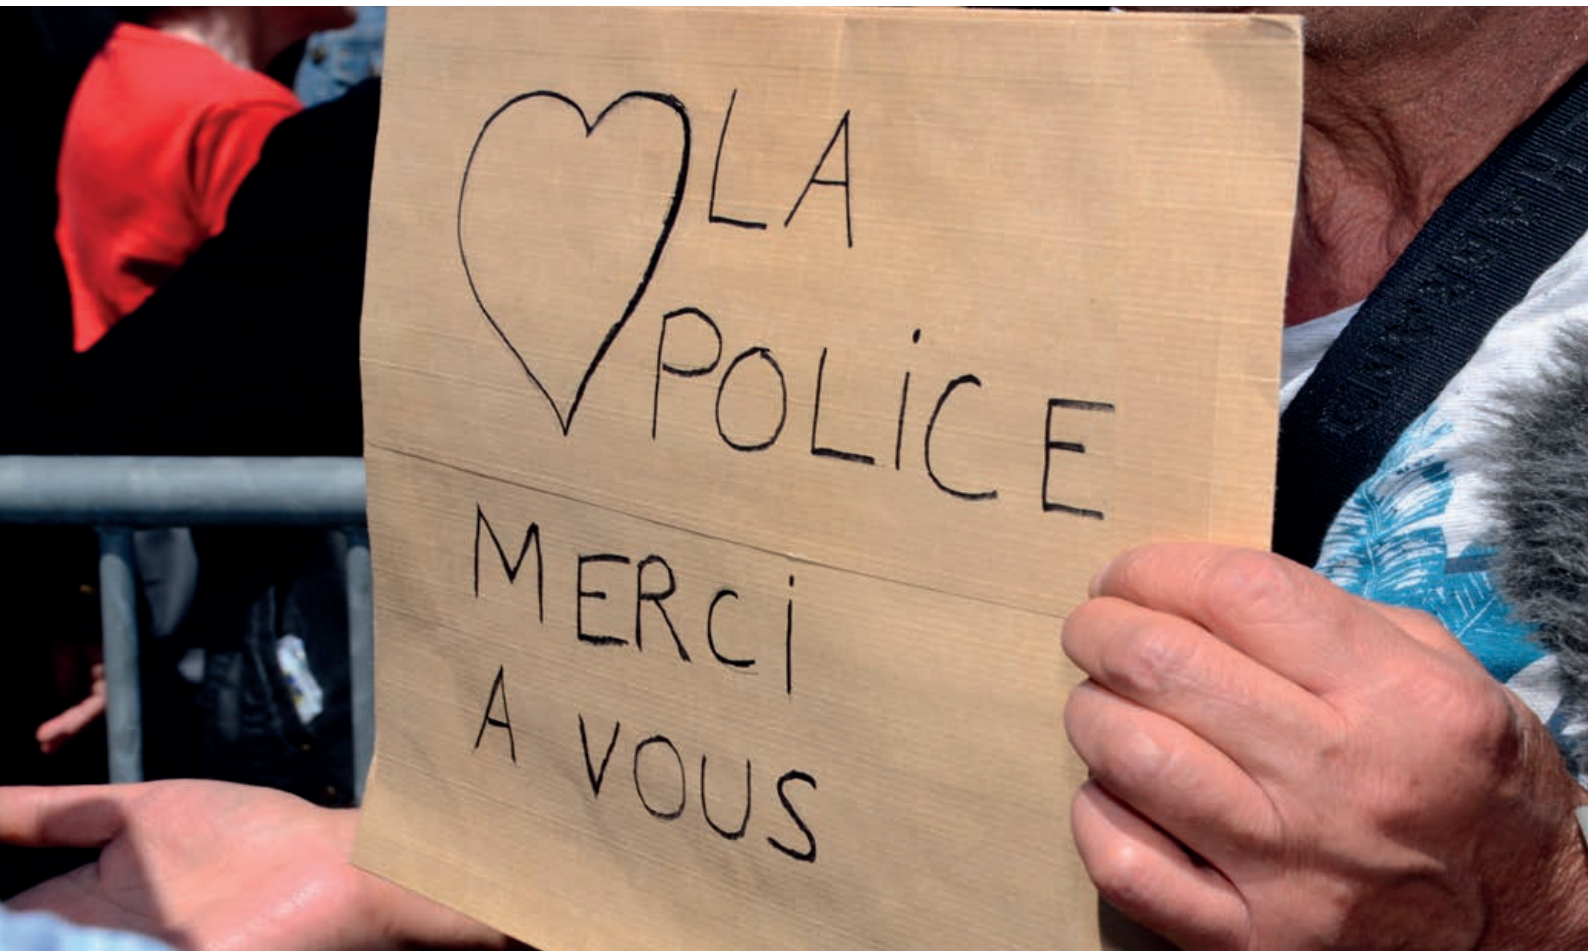 LA
POLiCE
MERCi
A VOUS